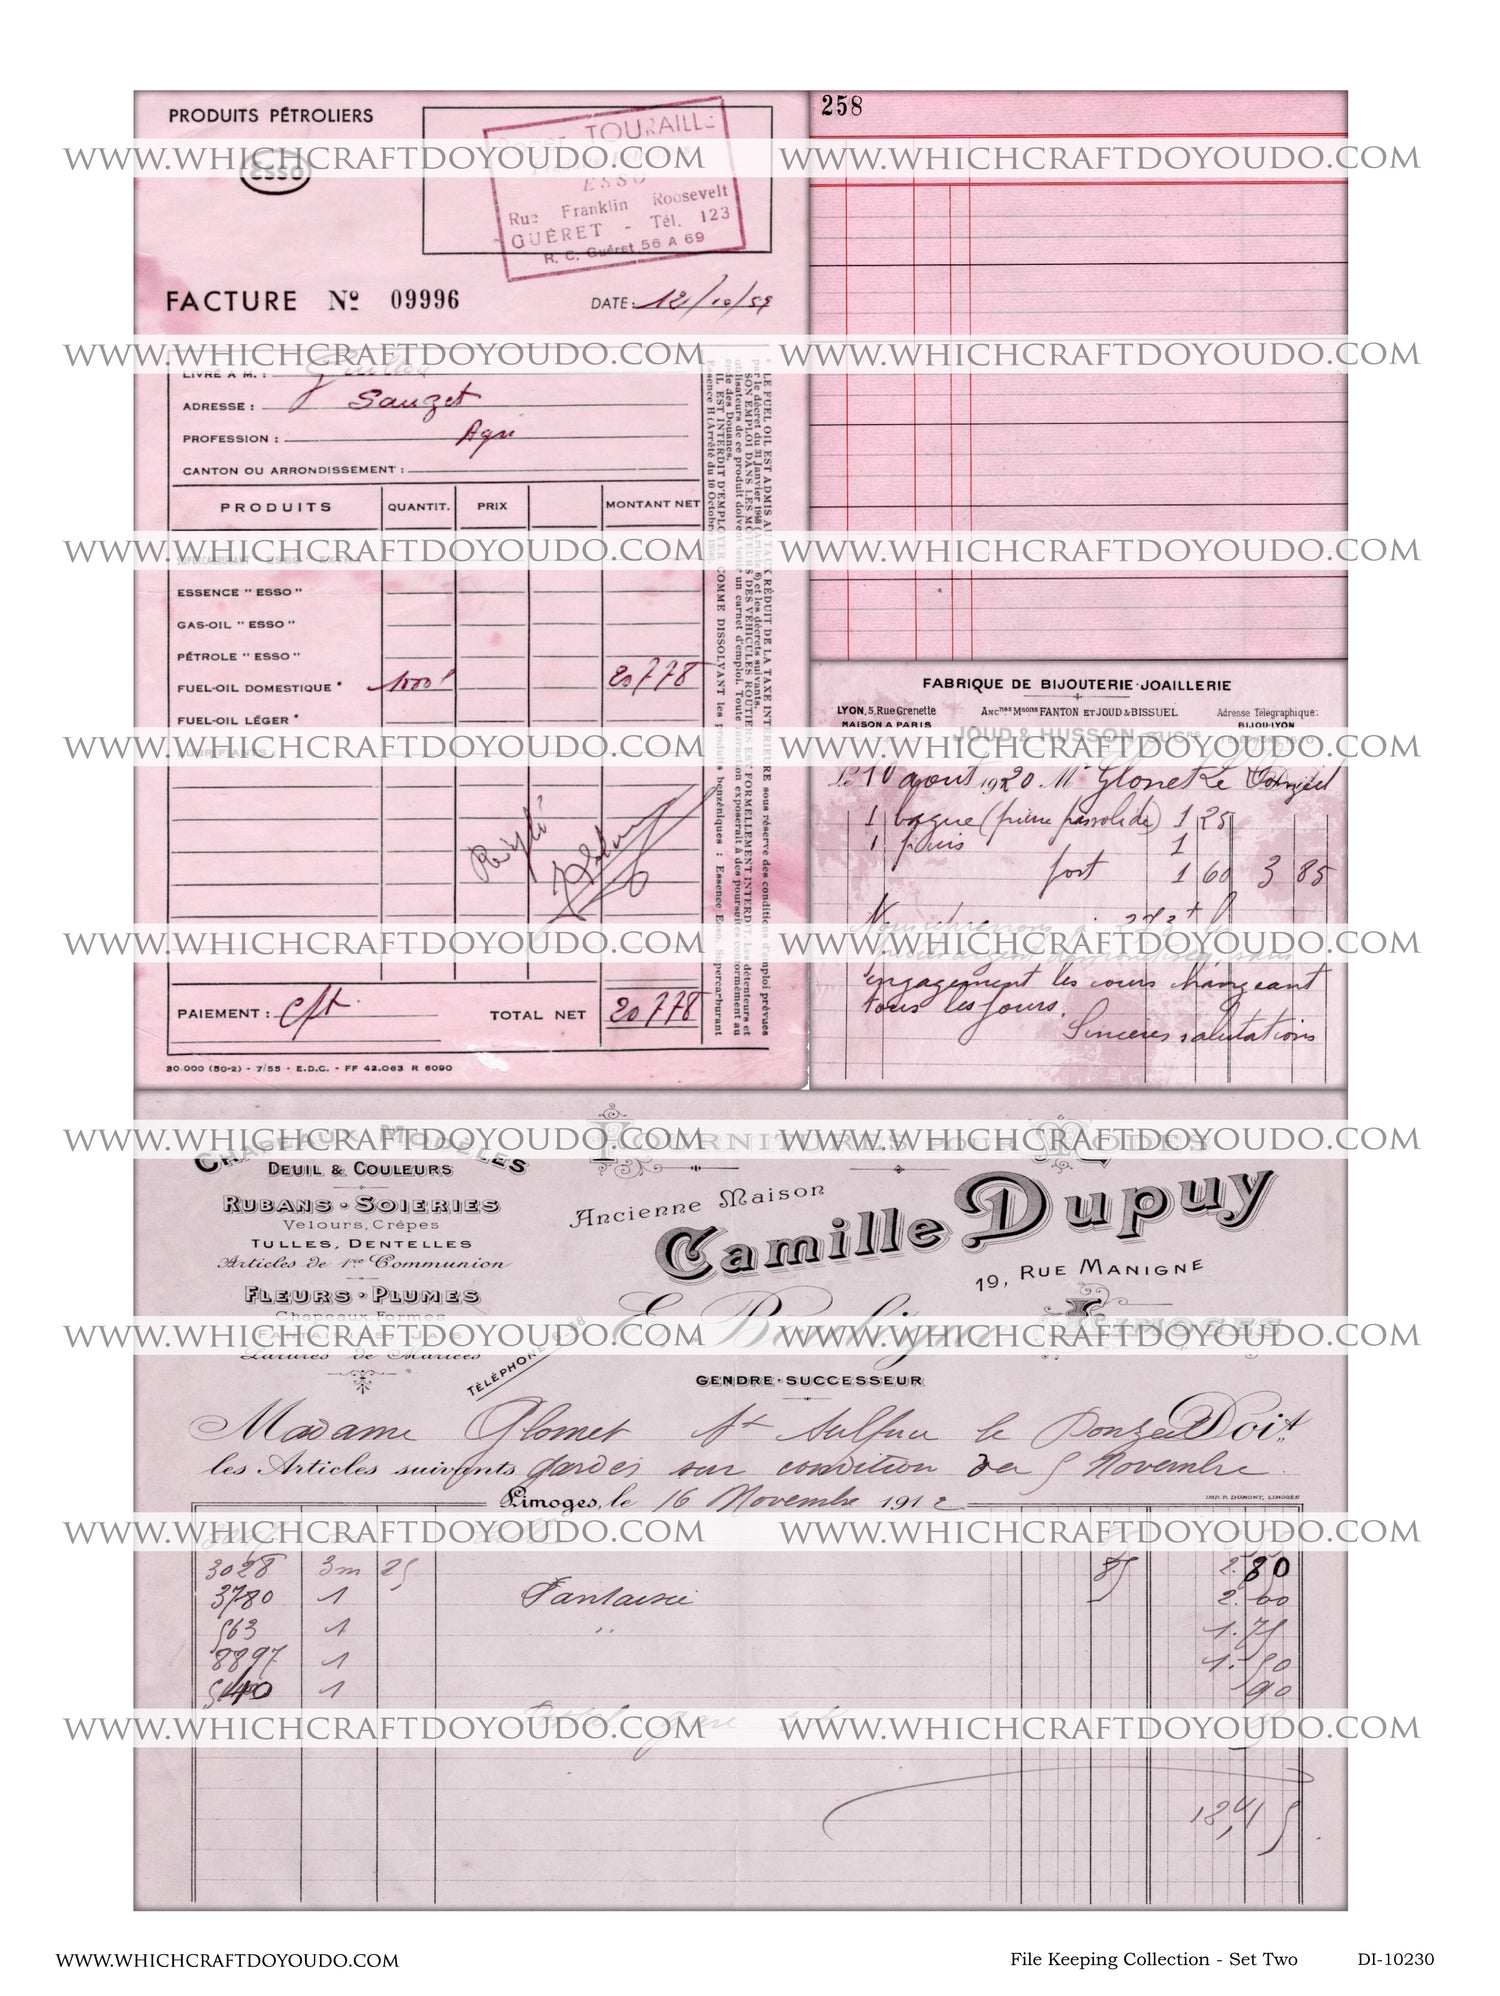 PRODUITS PÉTROLIERS
Esso
Roger TOURAILLE
ESSO
Rue Franklin Roosevelt
GUÉRET - Tél. 123
R. C. Guéret 56 A 69
FACTURE Nº 09996
DATE: 12/10/59
LIVRÉ A M. :
ADRESSE : Sauzet
PROFESSION : Agri
CANTON OU ARRONDISSEMENT :
PRODUITS QUANTIT. PRIX MONTANT NET
SUPERCARBURANT ESSO EXTRA
ESSENCE " ESSO "
GAS-OIL " ESSO "
PÉTROLE " ESSO "
FUEL-OIL DOMESTIQUE * 1000 l 20778
FUEL-OIL LÉGER *
LUBRIFIANTS :
PAIEMENT : cpt TOTAL NET 20778
30.000 (50-2) - 7/55 - E.D.C. - FF 42.063 R 6090
* LE FUEL OIL EST ADMIS AU TAUX RÉDUIT DE LA TAXE INTÉRIEURE sous réserve des conditions d'emploi prévues
SON EMPLOI DANS LES MOTEURS DES VÉHICULES ROUTIERS EST FORMELLEMENT INTERDIT. Les détenteurs et
utilisateurs de ce produit doivent tenir un carnet d'emploi. Toute infraction exposerait à des poursuites conformément au
code des Douanes.
IL EST INTERDIT D'EMPLOYER COMME DISSOLVANT les produits benzéniques : Essence Esso, Supercarburant
258
FABRIQUE DE BIJOUTERIE-JOAILLERIE
LYON, 5, Rue Grenette Ancnes Msons FANTON ET JOUD & BISSUEL Adresse Télégraphique:
MAISON A PARIS BIJOU-LYON
JOUD & HUSSON SUCRS
Le 10 août 1920 Mr Glonet Le
1 bague 1 25
1 1
port 1 60 3 85
engagement les cours changeant
tous les jours.
Sincères salutations
CHAPEAUX MODÈLES
DEUIL & COULEURS
RUBANS - SOIERIES
Velours, Crêpes
TULLES, DENTELLES
Articles de 1re Communion
FLEURS - PLUMES
Chapeaux, Formes
FANTAISIES, JAIS
Parures de Mariées
FOURNITURES POUR MODES
Ancienne Maison
Camille Dupuy
19, RUE MANIGNE
LIMOGES
TÉLÉPHONE
GENDRE-SUCCESSEUR
Madame Glomet St Sulpice le Donzeil Doit
les Articles suivants gardés sur condition du 5 Novembre
Limoges, le 16 Novembre 1912
IMP. P. DUMONT, LIMOGES
3028 3m 25 85 2.80
3780 1 Fantaisie 2.00
563 1 " 1.75
8897 1 1.50
1 90
18,45
WWW.WHICHCRAFTDOYOUDO.COM WWW.WHICHCRAFTDOYOUDO.COM
WWW.WHICHCRAFTDOYOUDO.COM WWW.WHICHCRAFTDOYOUDO.COM
WWW.WHICHCRAFTDOYOUDO.COM WWW.WHICHCRAFTDOYOUDO.COM
WWW.WHICHCRAFTDOYOUDO.COM WWW.WHICHCRAFTDOYOUDO.COM
WWW.WHICHCRAFTDOYOUDO.COM WWW.WHICHCRAFTDOYOUDO.COM
WWW.WHICHCRAFTDOYOUDO.COM WWW.WHICHCRAFTDOYOUDO.COM
WWW.WHICHCRAFTDOYOUDO.COM WWW.WHICHCRAFTDOYOUDO.COM
WWW.WHICHCRAFTDOYOUDO.COM WWW.WHICHCRAFTDOYOUDO.COM
WWW.WHICHCRAFTDOYOUDO.COM WWW.WHICHCRAFTDOYOUDO.COM
WWW.WHICHCRAFTDOYOUDO.COM File Keeping Collection - Set Two DI-10230